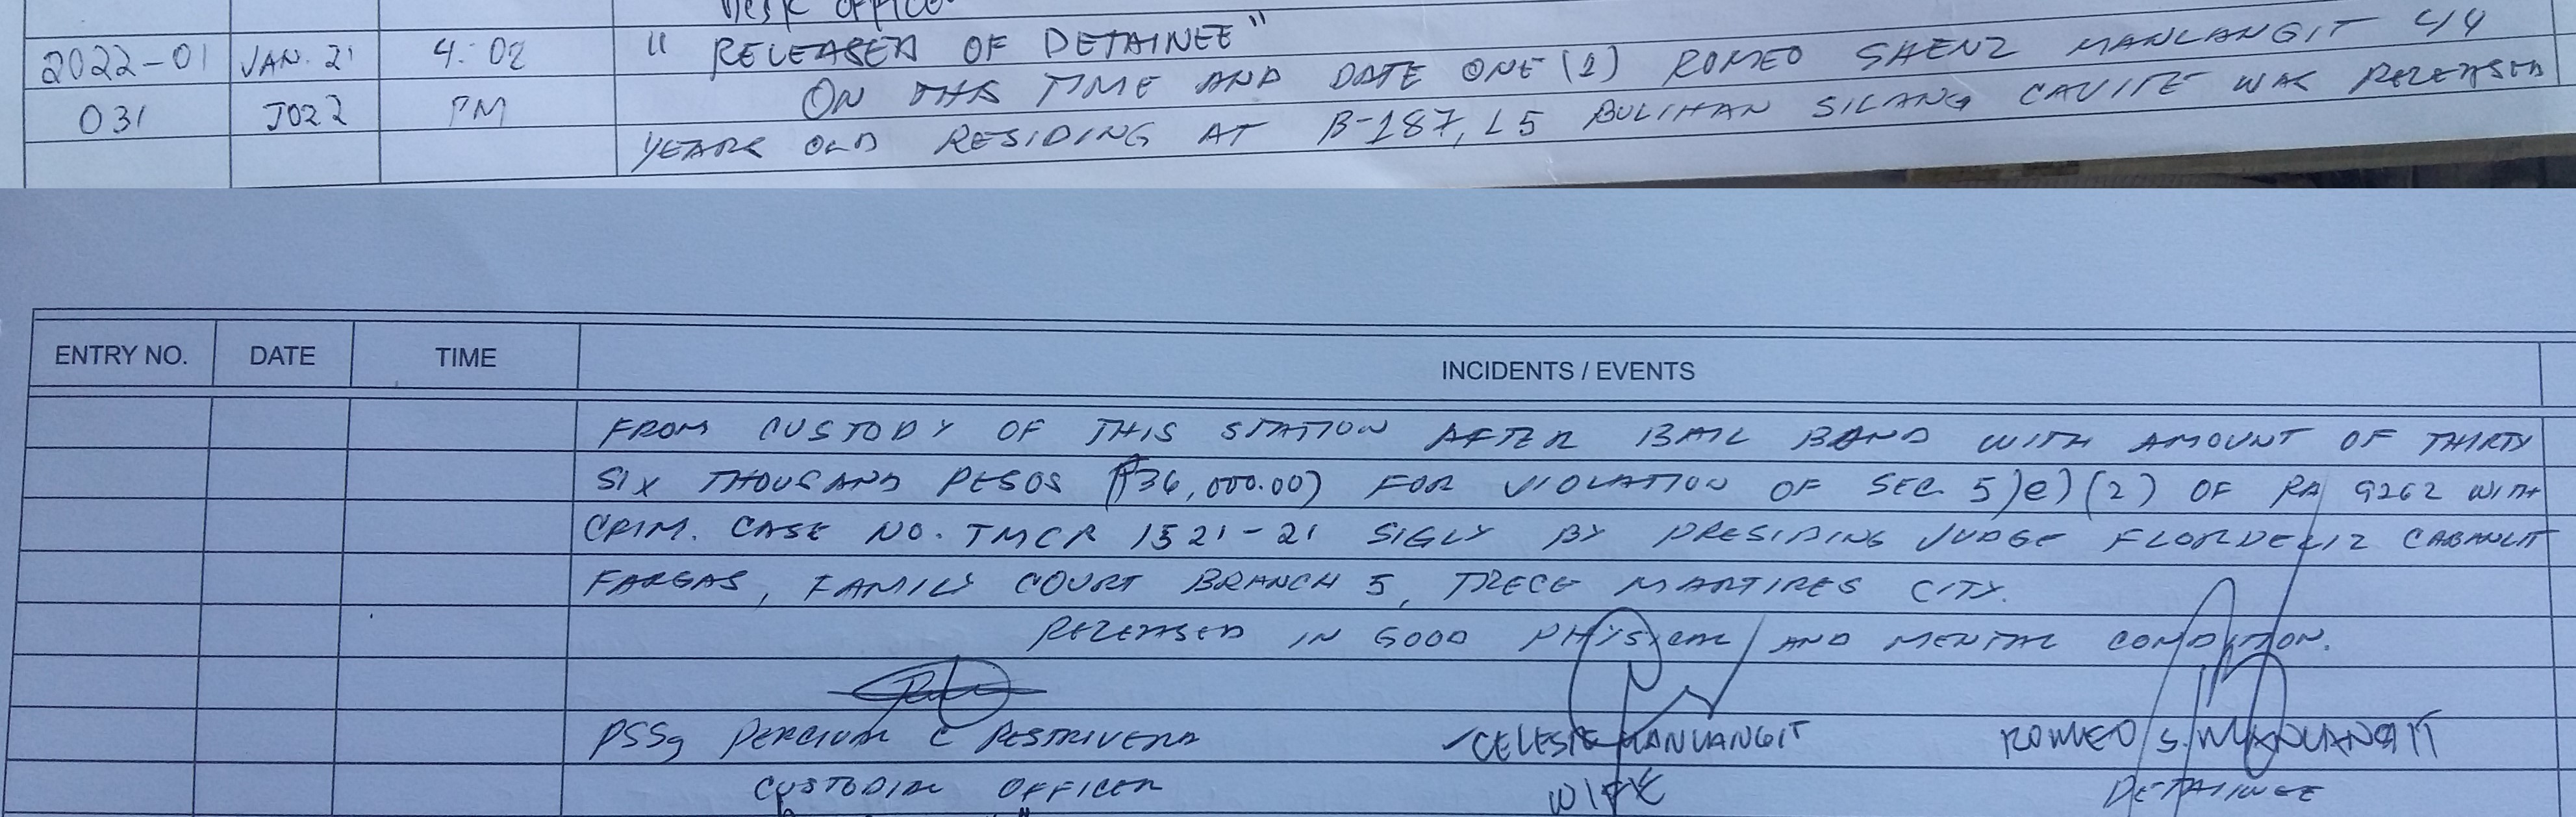 Desk Office
2022-01 JAN. 21 4:02 " RELEASED OF DETAINEE "
ON THIS TIME AND DATE ONE (1) ROMEO SAENZ MANLANGIT 44
031 2022 PM
YEARS OLD RESIDING AT B-187, L5 BULIHAN SILANG CAVITE WAS RELEASED
ENTRY NO. DATE TIME INCIDENTS / EVENTS
FROM CUSTODY OF THIS STATION AFTER BAIL BOND WITH AMOUNT OF THIRTY
SIX THOUSAND PESOS (₱36,000.00) FOR VIOLATION OF SEC. 5)e)(2) OF RA 9262 WITH
CRIM. CASE NO. TMCR 1521-21 SIGLY BY PRESIDING JUDGE FLORDELIZ CABANLIT
FARGAS, FAMILY COURT BRANCH 5, TRECE MARTIRES CITY.
RELEASED IN GOOD PHYSICAL AND MENTAL CONDITION.
PSSg PERCIVAL C RESTRIVERA CELESTE MANLANGIT ROMEO S. MANLANGIT
CUSTODIAL OFFICER WIFE DETAINEE